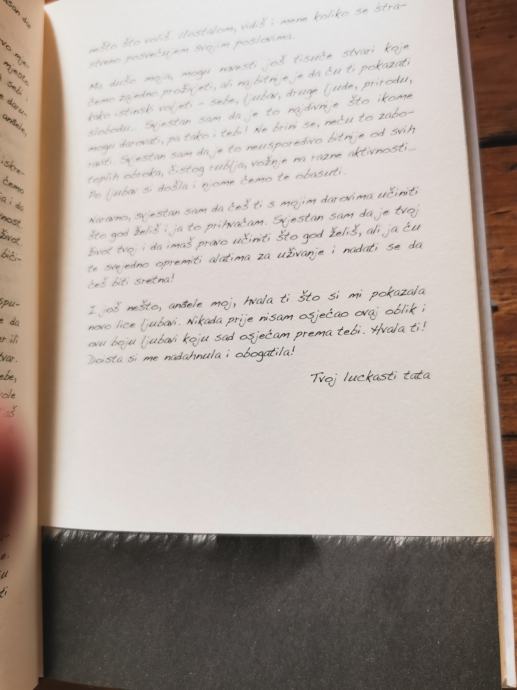 nešto što voliš. Uostalom, vidiš i mene koliko se stra-
stveno posvećujem svojim poslovima.
Ma dušo moja, mogu navesti još tisuće stvari koje
ćemo zajedno proživjeti, ali najbitnije je da ću ti pokazati
kako istinski voljeti - sebe, ljubav, druge ljude, prirodu,
slobodu. Svjestan sam da je to najdivnije što ikome
mogu darovati, pa tako i tebi! Ne brini se, neću to zabo-
raviti. Svjestan sam da je to neusporedivo bitnije od svih
toplih obroka, čistog rublja, vožnje na razne aktivnosti...
Po ljubav si došla i njome ćemo te obasuti.
Naravno, svjestan sam da ćeš ti s mojim darovima učiniti
što god želiš i ja to prihvaćam. Svjestan sam da je tvoj
život tvoj i da imaš pravo učiniti što god želiš, ali ja ću
te svejedno opremiti alatima za uživanje i nadati se da
ćeš biti sretna!
I još nešto, anđele moj, hvala ti što si mi pokazala
novo lice ljubavi. Nikada prije nisam osjećao ovaj oblik i
ovu boju ljubavi koju sad osjećam prema tebi. Hvala ti!
Doista si me nadahnula i obogatila!
Tvoj luckasti tata